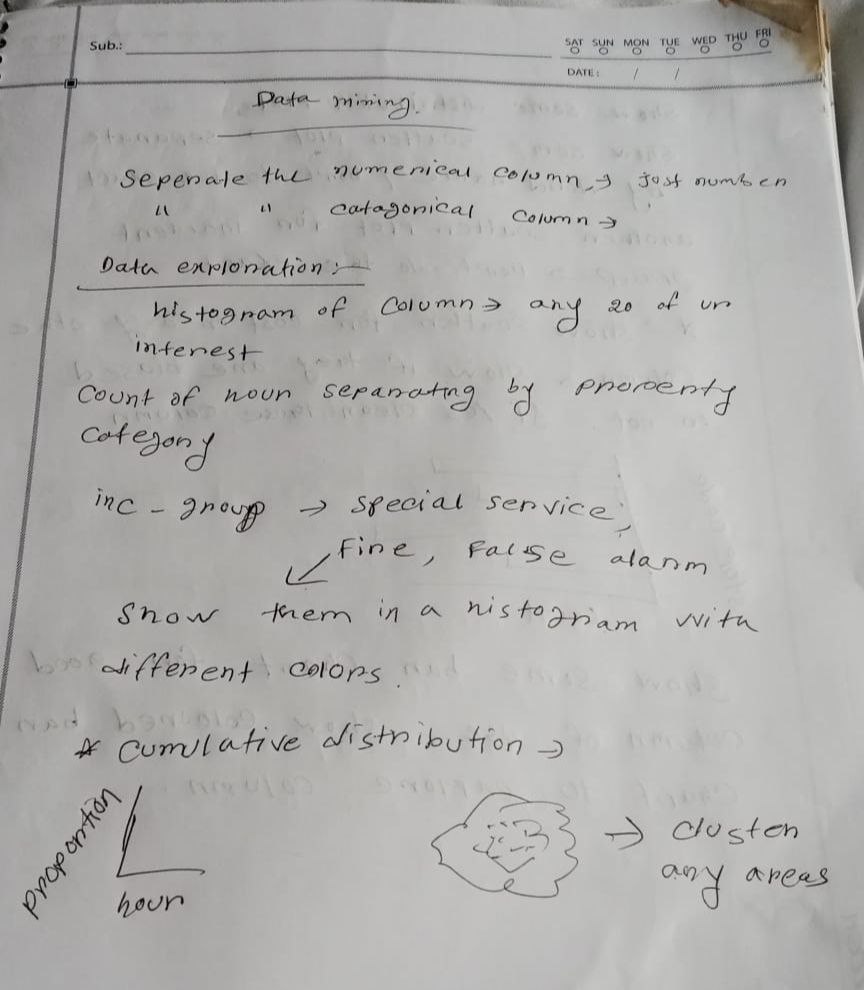 Sub.:
SAT SUN MON TUE WED THU FRI
DATE: / /
Data mining.
Seperate the numerical column, → just number
" " catagorical column →
Data exploration :-
histogram of column → any 20 of ur
interest
Count of hour separating by property
category
inc - group → special service,
Fire, False alarm
Show them in a histogram with
different colors.
* Cumulative distribution →
proportion
hour
→ cluster
any areas